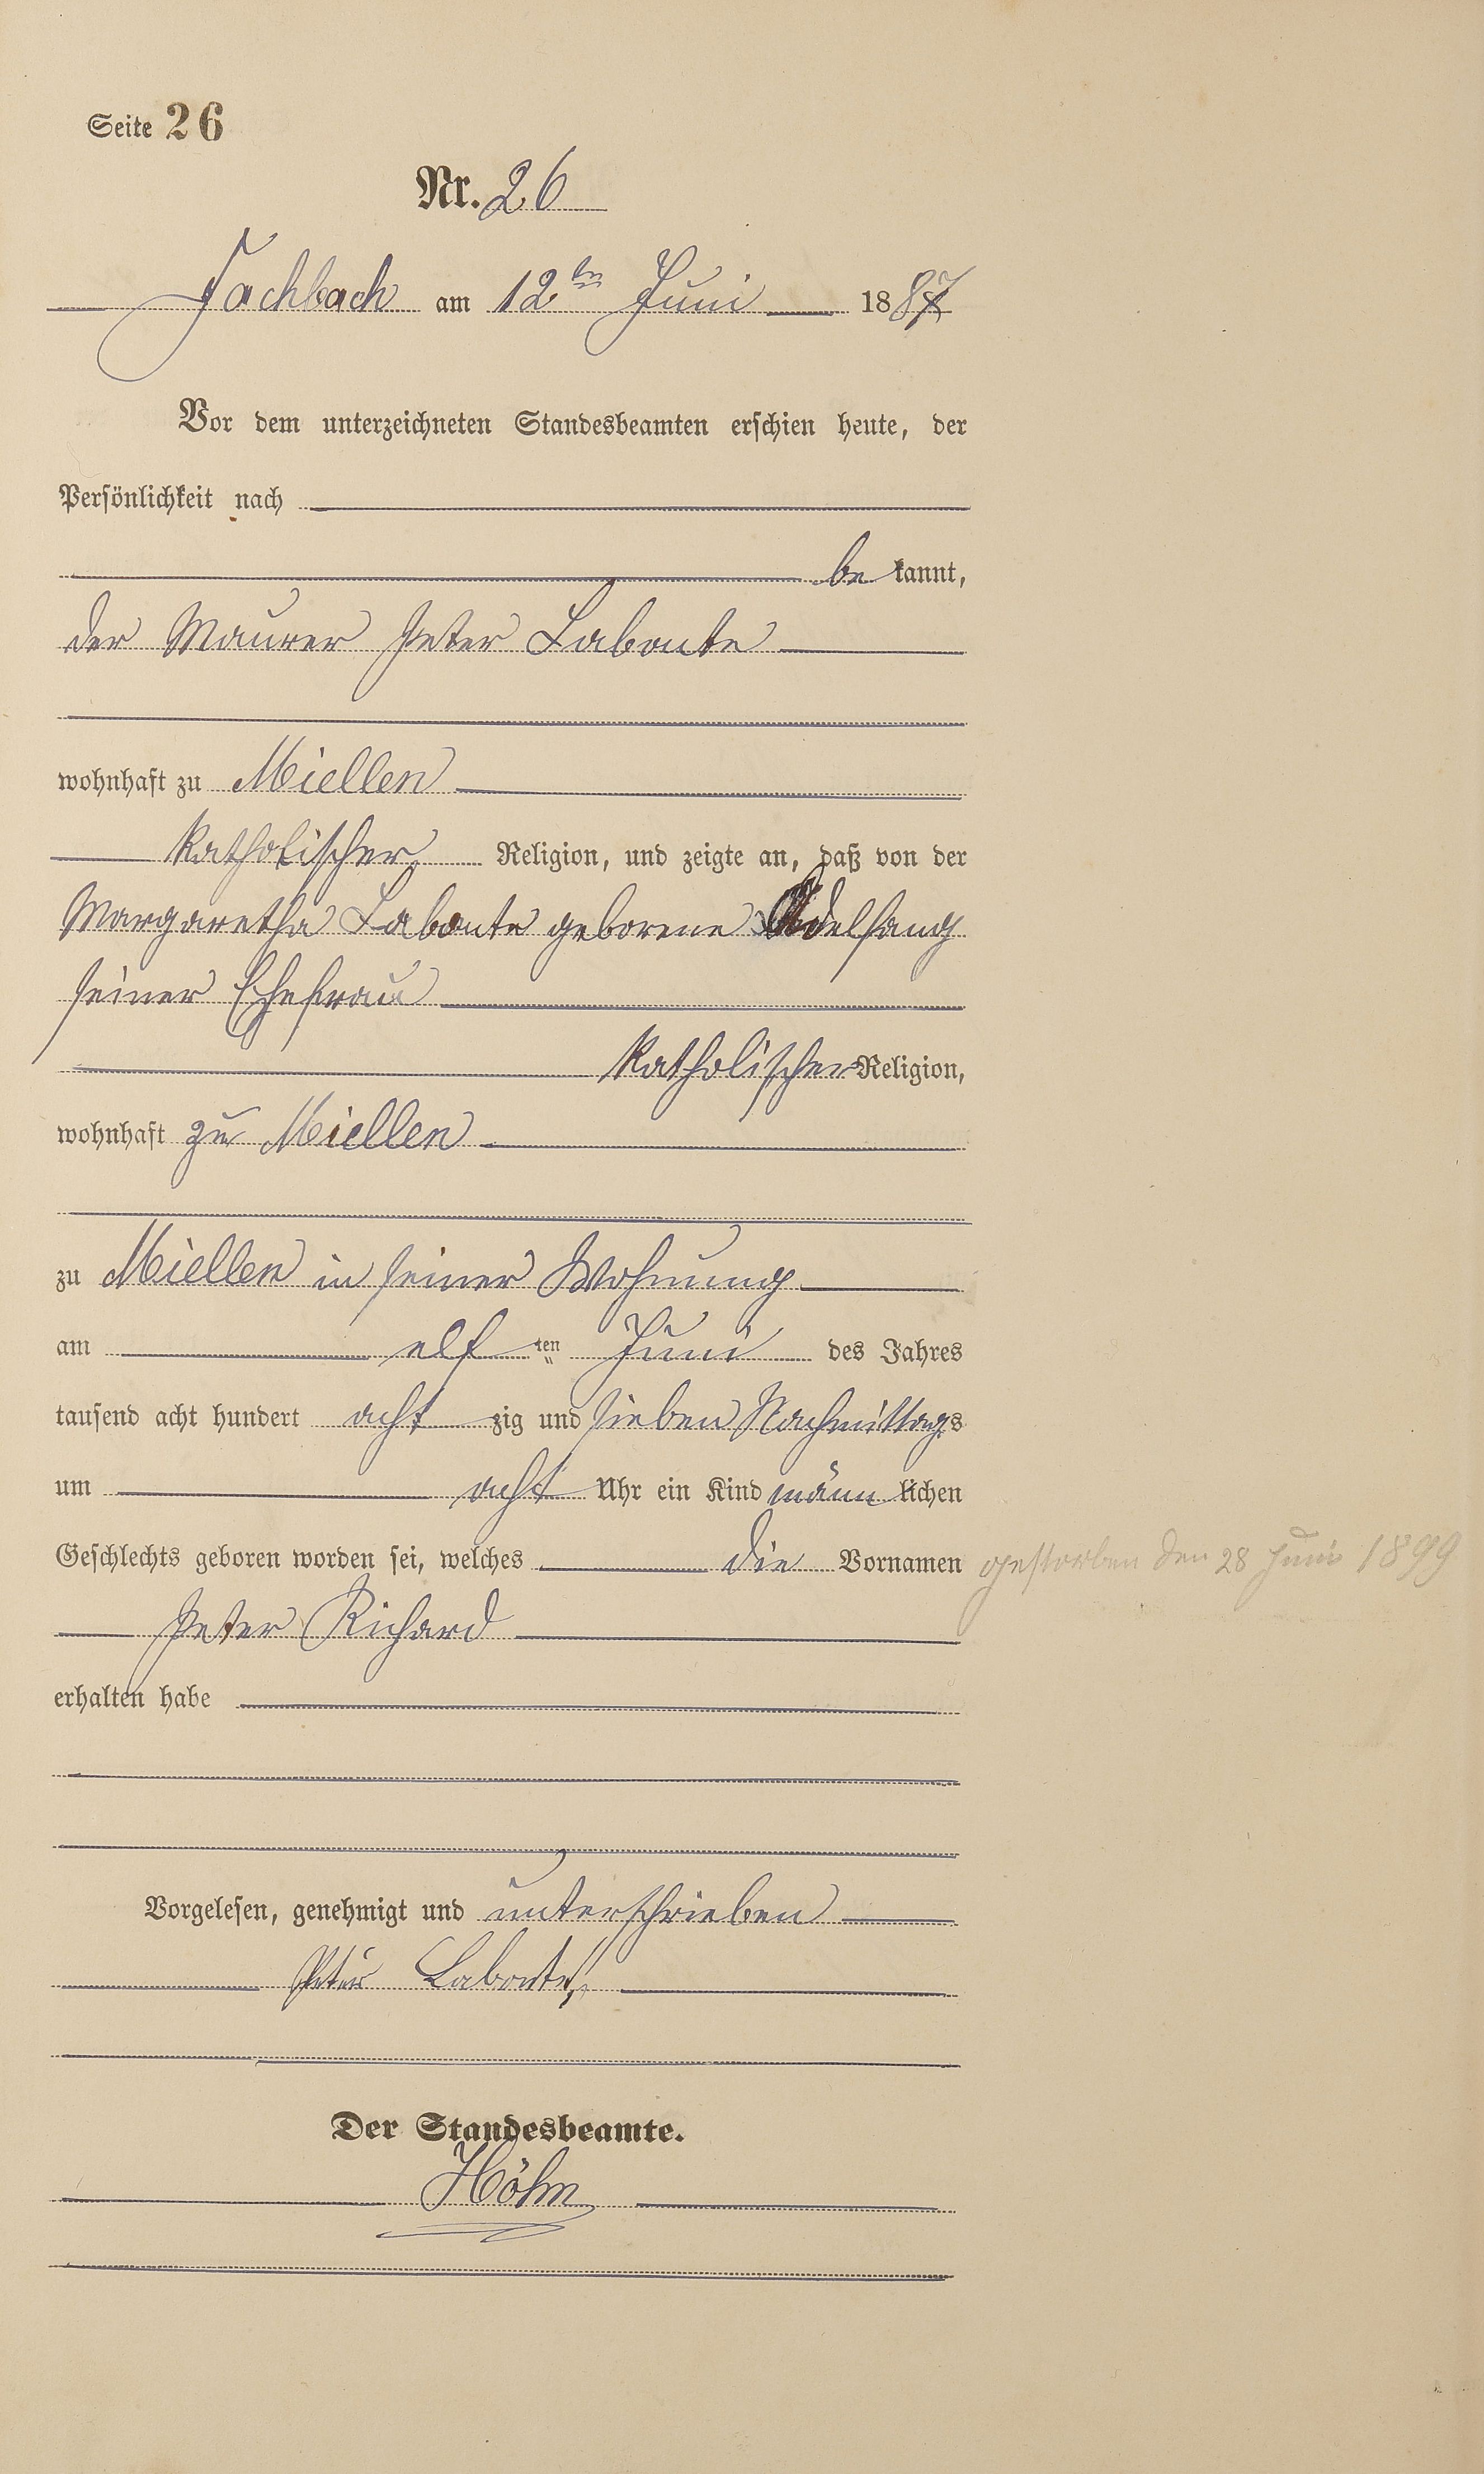 Seite 26
Nr. 26
Fachbach am 12ten Juni 1887
Vor dem unterzeichneten Standesbeamten erschien heute, der
Persönlichkeit nach
be kannt,
der Maurer Peter Labonte
wohnhaft zu Miellen
katholischer Religion, und zeigte an, daß von der
Margaretha Labonte geborene Adelfang
seiner Ehefrau
katholischer Religion,
wohnhaft zu Miellen
zu Miellen in seiner Wohnung
am elf ten Juni des Jahres
tausend acht hundert acht zig und sieben Nachmittags
um acht Uhr ein Kind männ lichen
Geschlechts geboren worden sei, welches die Vornamen
gestorben den 28 Juni 1899
Peter Richard
erhalten habe
Vorgelesen, genehmigt und unterschrieben
Peter Labonte
Der Standesbeamte.
Höhn